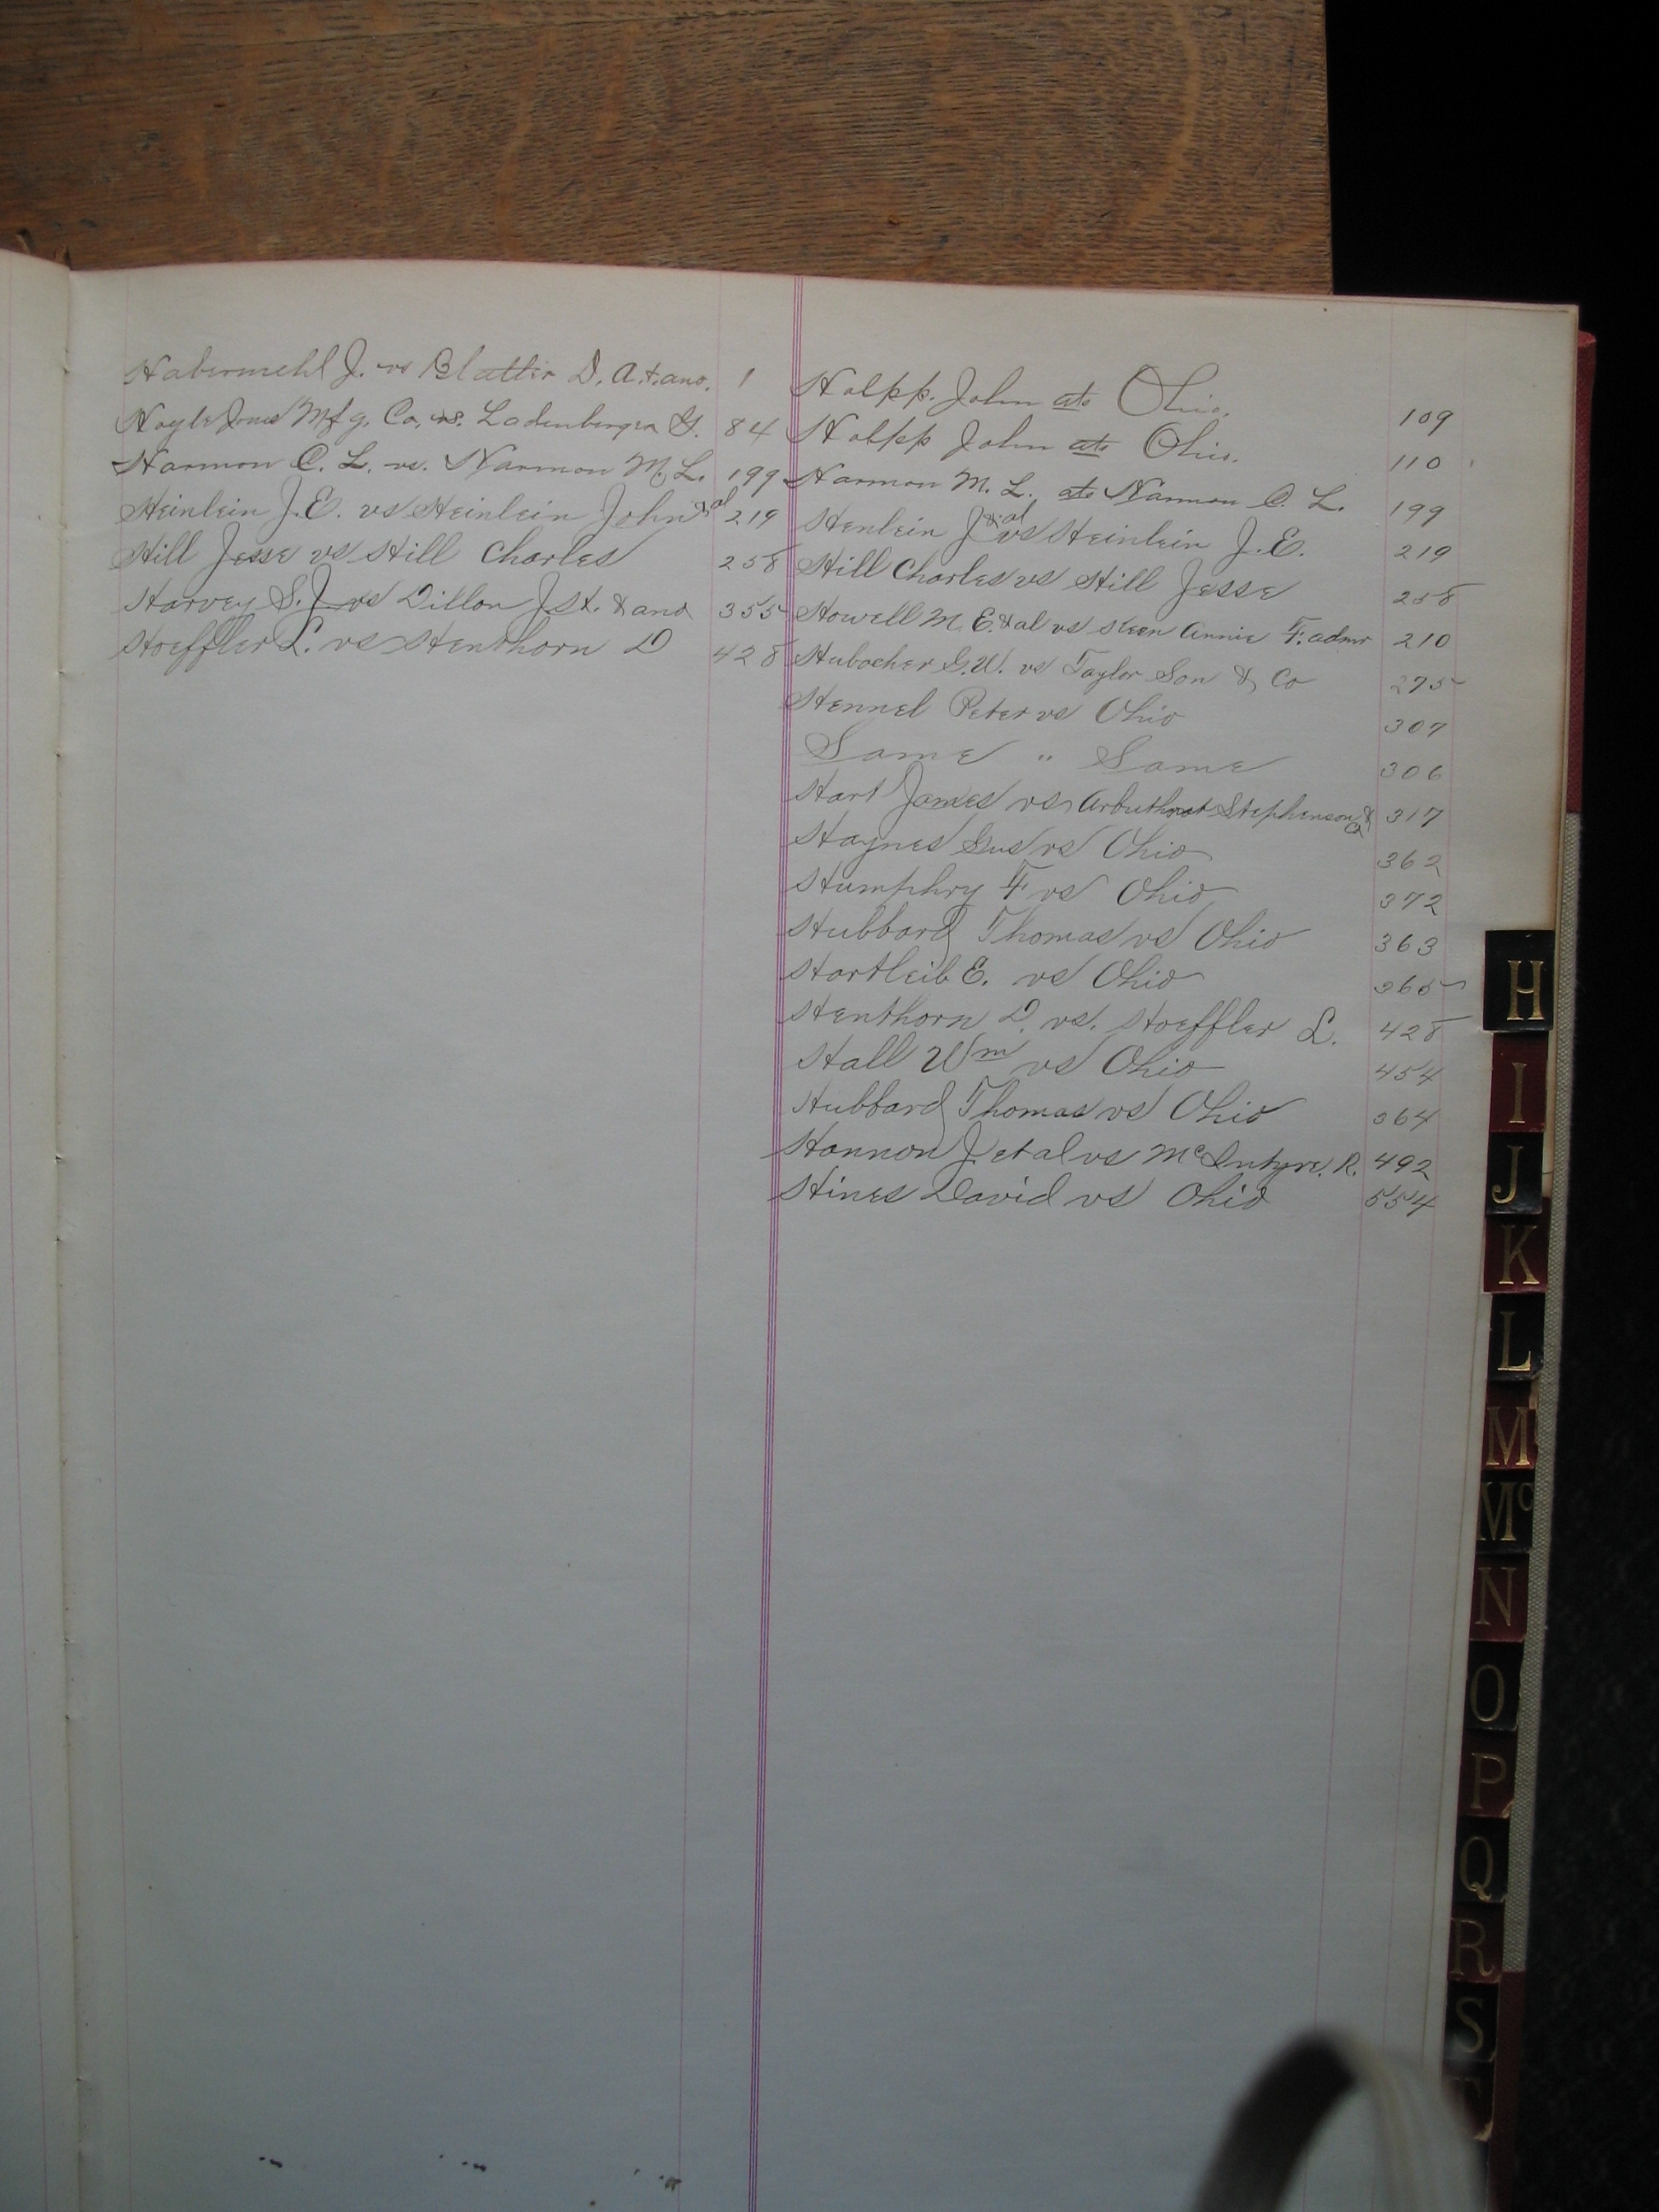 Habermehl J. vs Blatter D. A. & ano. 1
Hayle Jones Mfg. Co, vs. Ladenberger G. 84
Harmon C. L. vs. Harmon M. L. 199
Heinlein J. E. vs Heinlein John & al 219
Hill Jesse vs Hill Charles 258
Harvey S. J. vs Dillon J. St. & ano 355
Hoeffler L. vs Henthorn D 428
Holpp. John ats Ohio. 109
Holpp John ats Ohio. 110
Harmon M. L. ats Harmon C. L. 199
Henlein J & al vs Heinlein J. E. 219
Hill Charles vs Hill Jesse 258
Howell M. E. & al vs Keen Annie F. admr 210
Hubacher G. W. vs Taylor Son & Co 275
Hennel Peter vs Ohio 307
Same " Same 306
Hart James vs Arbuthnot Stephenson & Co 317
Haynes Gus vs Ohio 362
Humphry F vs Ohio 372
Hubbard Thomas vs Ohio 363
Hartleib E. vs Ohio 365
Henthorn D. vs. Hoeffler L. 428
Hall Wm vs Ohio 454
Hubbard Thomas vs Ohio 364
Hannon J. et al vs McIntyre. R. 492
Hines David vs Ohio 554
H
I
J
K
L
M
Mc
N
O
P
Q
R
S
T